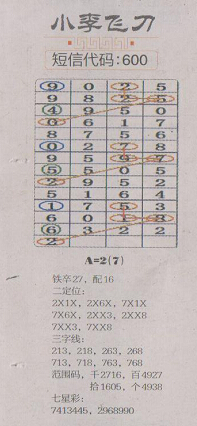 小李飞刀
短信代码:600
9 0 2 5
9 8 2 5
4 9 5 0
6 6 1 7
8 7 5 6
0 2 7 8
9 5 9 7
5 5 0 5
2 9 5 2
5 1 6 4
1 7 5 3
6 0 1 8
6 3 2 2
2
A=2(7)
铁卒27,配16
二定位:
2X1X,2X6X,7X1X
7X6X,2XX3,2XX8
7XX3,7XX8
三字线:
213,218,263,268
713,718,763,768
范围码,千2716,百4927
拾1605,个4938
七星彩:
7413445,2968990